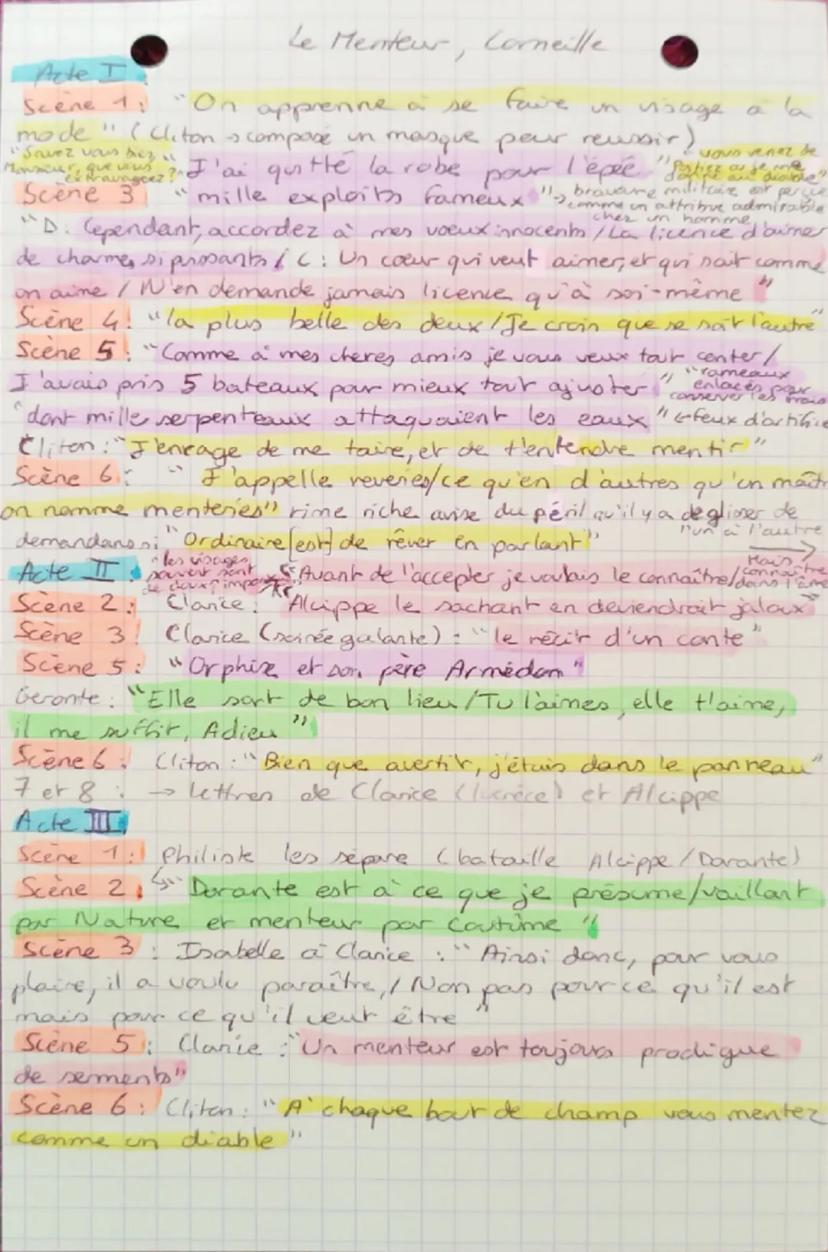 Le Menteur, Corneille
Acte I
Scène 1 : "On apprenne à se faire un visage à la
mode" (Cliton → composé un masque pour reussir)
"Savez vous bien
Monsieur, que vous
extravaguez ?"
"J'ai quitté la robe pour l'épée
"vous venez de
Scène 3 "mille exploits fameux" → bravoure militaire est perçue
comme un attribut admirable
chez un homme
"D. Cependant, accordez à mes voeux innocents / La licence d'aimer
de charmes si puissants / C : Un cœur qui veut aimer, et qui sait comme
on aime / N'en demande jamais licence qu'à soi-même"
Scène 4 : "la plus belle des deux / Je crois que se soit l'autre"
Scène 5 : "Comme à mes chères amis je vous veux tout conter /
J'avais pris 5 bateaux pour mieux tout ajuster"
"rameaux
enlacés pour
conserver les frais
"dont mille serpenteaux attaquaient les eaux" ← feux d'artifice
Cliton : "J'enrage de me taire, et de t'entendre mentir"
Scène 6 : "J'appelle reveries / ce qu'en d'autres qu'en maître
on nomme menteries" rime riche avise du péril qu'il y a de glisser de
l'un à l'autre
demandans : "Ordinaire [est] de rêver en parlant"
Acte II :
"les visages
souvent sont
de doux imposteurs
"Avant de l'accepter je voulais le connaître /
Mais connaître
dans l'âme
Scène 2 : Clarice : "Alcippe le sachant en deviendrait jaloux"
Scène 3 : Clarice (soirée galante) : "le récit d'un conte"
Scène 5 : "Orphise et son père Armédon"
Geronte : "Elle sort de bon lieu / Tu l'aimes, elle t'aime,
il me suffit, Adieu"
Scène 6 : Cliton : "Bien que avertir, j'étais dans le panneau"
7 et 8 : → Lettres de Clarice (lucrèce) et Alcippe
Acte III
Scène 1 : Philiste les sépare (bataille Alcippe / Dorante)
Scène 2 : "Dorante est à ce que je présume / vaillant
par Nature et menteur par Coutûme"
Scène 3 : Isabelle à Clarice : "Ainsi donc, pour vous
plaire, il a voulu paraître, / Non pas pour ce qu'il est
mais pour ce qu'il veut être"
Scène 5 : Clarice : "Un menteur est toujours prodigue
de serments"
Scène 6 : Cliton : "A chaque bout de champ vous mentez
comme un diable"